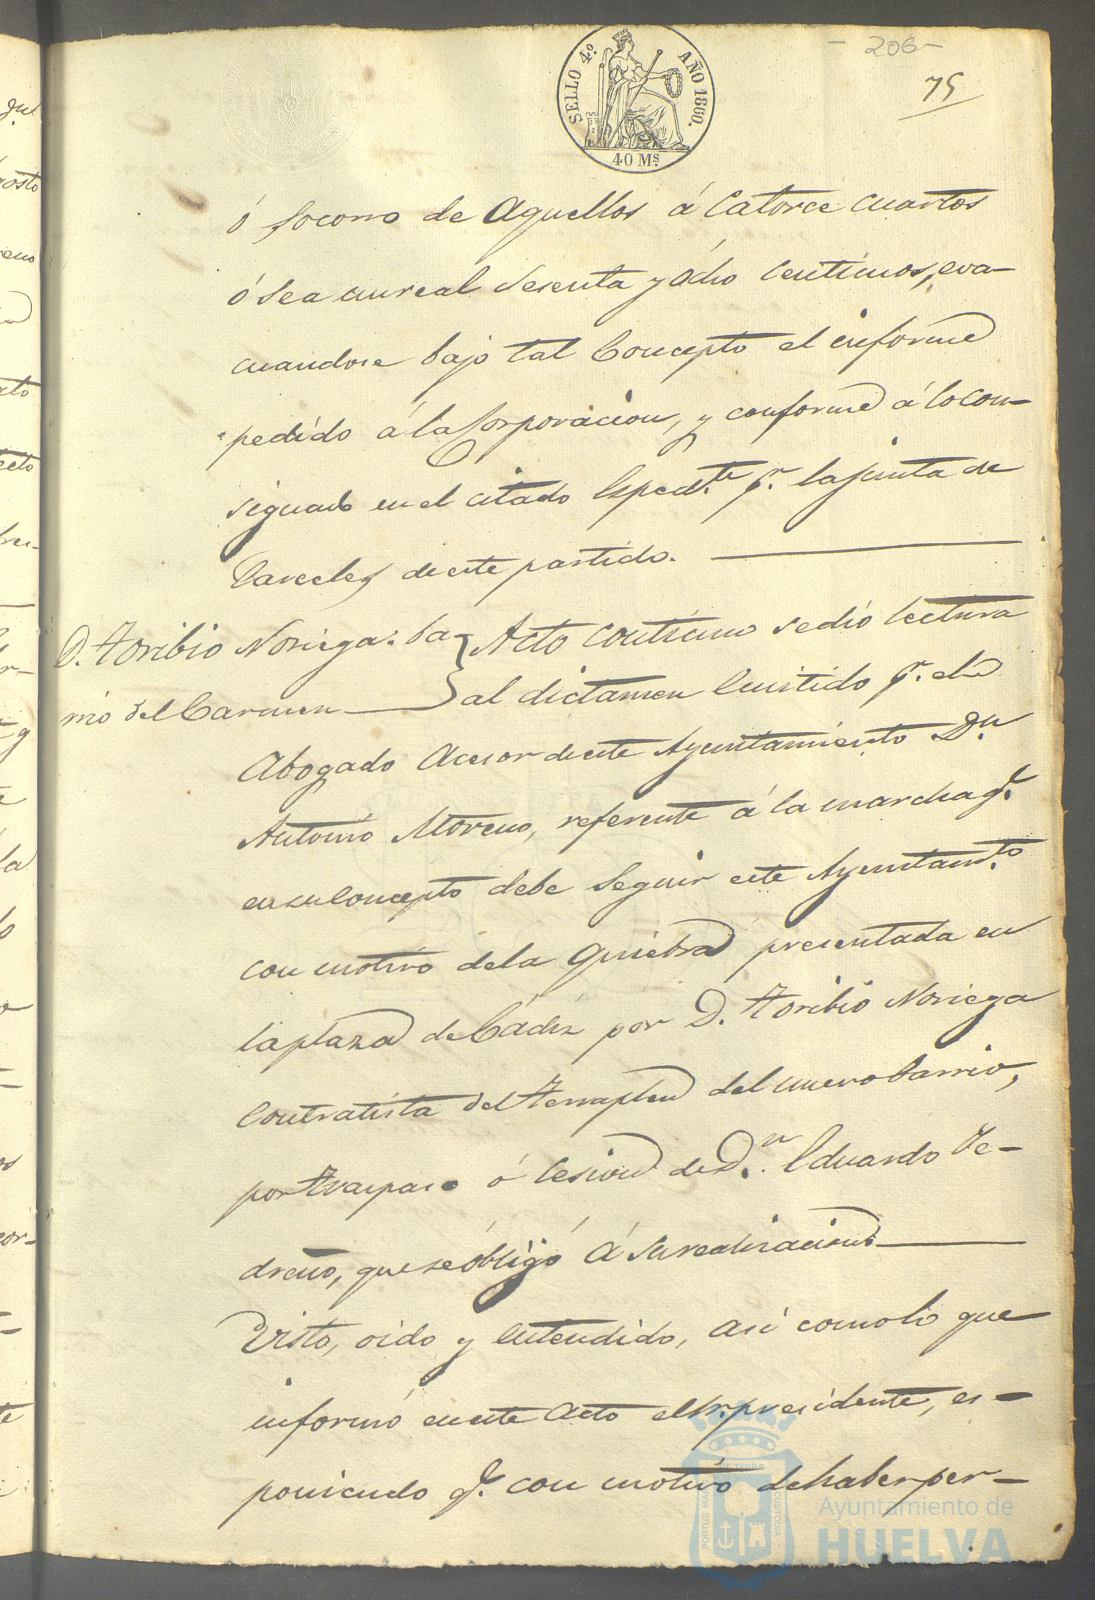 - 206 -
75
SELLO 4º AÑO 1860.
40 Ms.
ó socorro de Aquellos á Catorce cuartos
ó sea un real sesenta y ocho Centimos, eva-
cuandose bajo tal Concepto el informe
pedido á la Corporacion, y conforme á lo con-
signado en el citado Expedte. pr. la Junta de
Carceles de este partido.
D. Toribio Noriega: ba-
rrio del Carmen
Acto contínuo se dió lectura
al dictamen Emitido pr. el
Abogado Acesor de este Ayuntamiento Dn
Antonio Moreno, referente á la marcha qe.
en su Concepto debe Seguir este Ayuntamto.
con motivo de la Quiebra presentada en
la plaza de Cádiz por D. Toribio Noriega
Contratista del terraplen del nuevo barrio,
por traspaso ó Cesion de Dn. Eduardo Ce-
dreño, que se óbligó á su realizacion
Visto, oido y Entendido, así como lo que
informó en este Acto el Sr. presidente, es-
poniendo qe. con motivo de haber per-
PORTUS MARIS ET TERRAE CUSTODIA
Ayuntamiento de
HUELVA